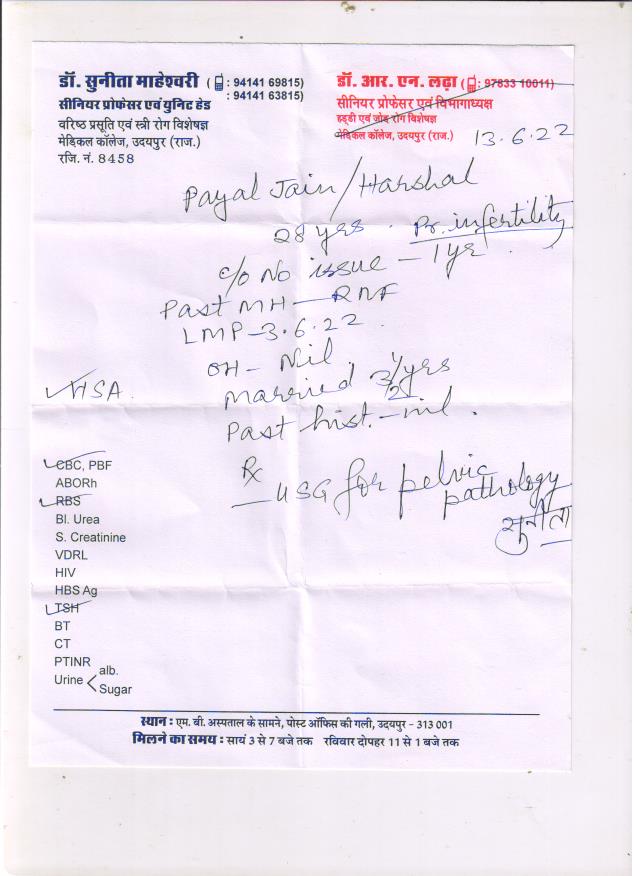 डॉ. सुनीता माहेश्वरी ( : 94141 69815)
: 94141 63815)
सीनियर प्रोफेसर एवं युनिट हेड
वरिष्ठ प्रसूति एवं स्त्री रोग विशेषज्ञ
मेडिकल कॉलेज, उदयपुर (राज.)
रजि. नं. 8458
डॉ. आर. एन. लढ़ा ( : 97833 10011)
सीनियर प्रोफेसर एवं विभागाध्यक्ष
हड्डी एवं जोड़ रोग विशेषज्ञ
मेडिकल कॉलेज, उदयपुर (राज.)
13.6.22
Payal Jain / Harshal
28 yrs . Pr. infertility
c/o No issue - 1 yr .
Past MH - RNF
LMP - 3.6.22
OH - Nil .
married 3 1/2 yrs
Past hist. - nil .
HSA
Rx
- USG for pelvic
pathology
सुनीता
CBC, PBF
ABORh
RBS
Bl. Urea
S. Creatinine
VDRL
HIV
HBS Ag
TSH
BT
CT
PTINR
Urine < alb.
Sugar
स्थान : एम. बी. अस्पताल के सामने, पोस्ट ऑफिस की गली, उदयपुर - 313 001
मिलने का समय : सायं 3 से 7 बजे तक रविवार दोपहर 11 से 1 बजे तक